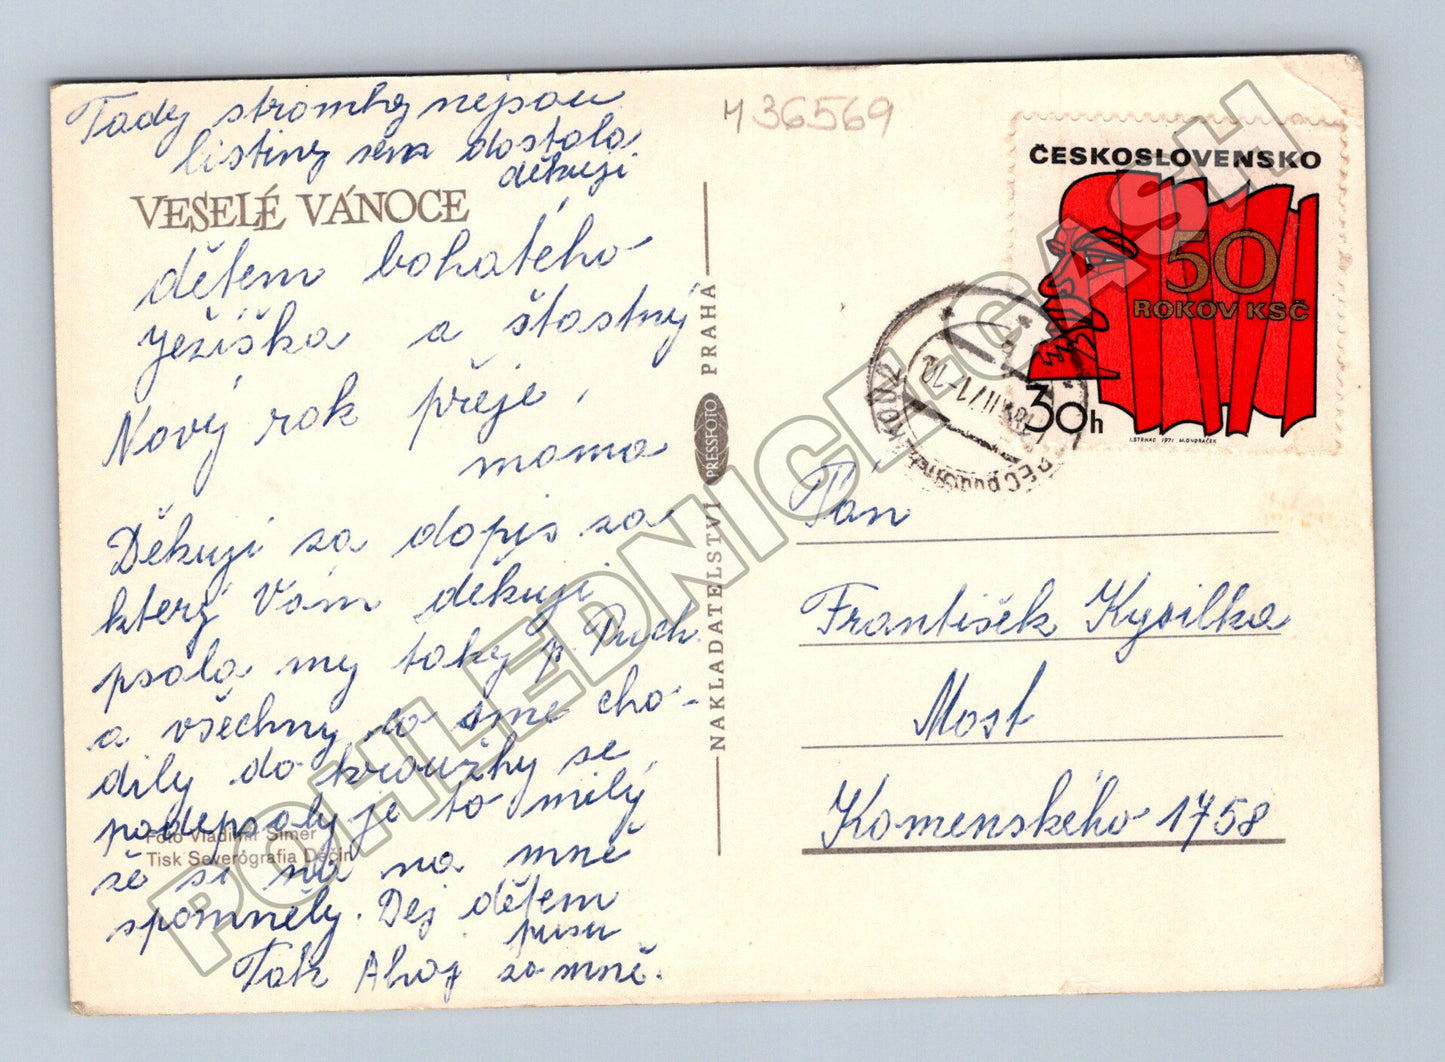 Tady stromky nejsou
listiny sem dostala
děkuji
VESELÉ VÁNOCE
dětem bohatého
Ježíška a štastný
Nový rok přeje,
mama
Děkuji za dopis za
který Vám děkuji
psala my taky p. Duch
a všechny co sme cho-
dily do kroužky se
podepsaly je to milý
že si na na mně
spomněly. Dej dětem
pusu
Tak Ahoj za mně.
Foto Vladimír Šimer
Tisk Severografia Děčín
NAKLADATELSTVÍ PRESSFOTO PRAHA
436569
ČESKOSLOVENSKO
50
ROKOV KSČ
30h
I. STRNAD 1971 M. ONDRÁČEK
Pán
František Kysilka
Most
Komenského 1758
POHLEDNICE-GASH